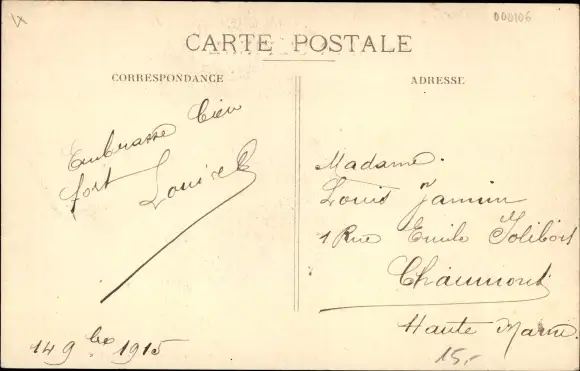 000106
CARTE POSTALE
CORRESPONDANCE
ADRESSE
Embrasse bien
fort Louise
14 9bre 1915
Madame.
Louis Jamin
1 Rue Emile Jolibois
Chaumont
Haute Marne.
15,-